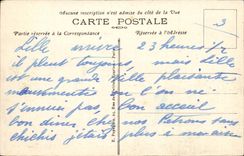 Aucune inscription n'est admise du côté de la Vue
CARTE POSTALE
Partie réservée à la Correspondance
Réservée à l'Adresse
3
Lille mure 23 heures 1/2
il pleut toujours, mais Lille
est une grande ville plaisante
on l'on ne
s'ennui pas, bon accueil
bon diner chez nos Patrons sans
chichis j'étais plus à mon aise